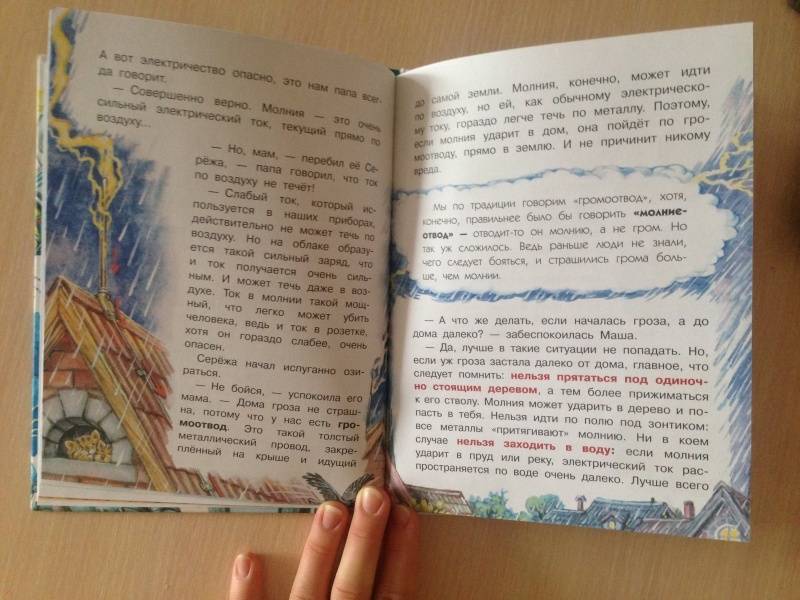 А вот электричество опасно, это нам папа всег-
да говорит.
— Совершенно верно. Молния — это очень
сильный электрический ток, текущий прямо по
воздуху...
— Но, мам, — перебил её Се-
рёжа, — папа говорил, что ток
по воздуху не течёт!
— Слабый ток, который ис-
пользуется в наших приборах,
действительно не может течь по
воздуху. Но на облаке образу-
ется такой сильный заряд, что
и ток получается очень силь-
ным. И может течь даже в воз-
духе. Ток в молнии такой мощ-
ный, что легко может убить
человека, ведь и ток в розетке,
хотя он гораздо слабее, очень
опасен.
Серёжа начал испуганно ози-
раться.
— Не бойся, — успокоила его
мама. — Дома гроза не страш-
на, потому что у нас есть гро-
моотвод. Это такой толстый
металлический провод, закре-
плённый на крыше и идущий
до самой земли. Молния, конечно, может идти
по воздуху, но ей, как обычному электрическо-
му току, гораздо легче течь по металлу. Поэтому,
если молния ударит в дом, она пойдёт по гро-
моотводу, прямо в землю. И не причинит никому
вреда.
Мы по традиции говорим «громоотвод», хотя,
конечно, правильнее было бы говорить «молние-
отвод» — отводит-то он молнию, а не гром. Но
так уж сложилось. Ведь раньше люди не знали,
чего следует бояться, и страшились грома боль-
ше, чем молнии.
— А что же делать, если началась гроза, а до
дома далеко? — забеспокоилась Маша.
— Да, лучше в такие ситуации не попадать. Но,
если уж гроза застала далеко от дома, главное, что
следует помнить: нельзя прятаться под одиноч-
но стоящим деревом, а тем более прижиматься
к его стволу. Молния может ударить в дерево и по-
пасть в тебя. Нельзя идти по полю под зонтиком:
все металлы «притягивают» молнию. Ни в коем
случае нельзя заходить в воду: если молния
ударит в пруд или реку, электрический ток рас-
пространяется по воде очень далеко. Лучше всего